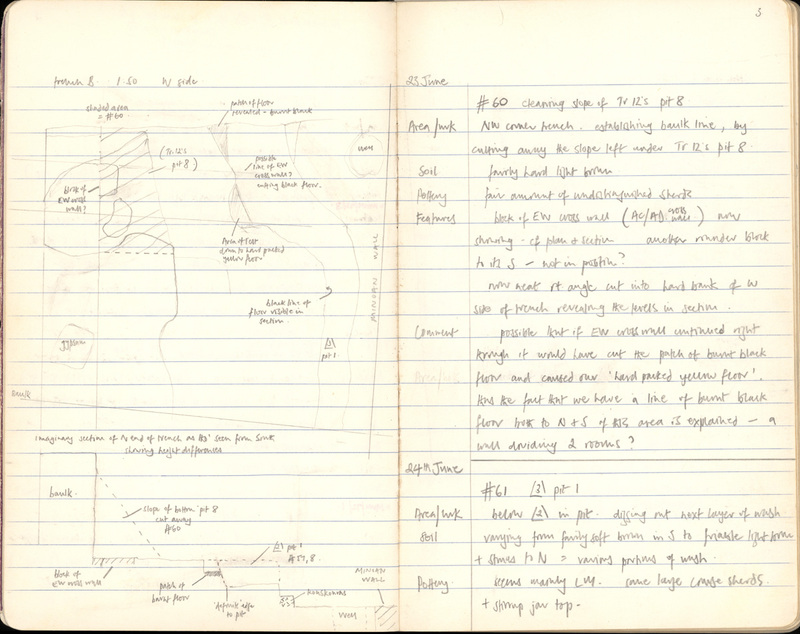 trench B 1:50 W side
shaded area
= #60
patch of floor
revealed - burnt black
(Tr 12's
pit 8)
possible
line of EW
cross wall?
cutting black floor.
WELL
block of
EW cross
wall?
Area of test
down to hard packed
yellow floor
MINOAN WALL
black line of
floor visible in
section.
gypsum
pit 1
baulk
Imaginary section of N end of trench as tho' seen from South
showing height differences
baulk
slope of bottom pit 8
cut away
#60
pit 1
#57, 8
block of
EW cross wall
patch of
burnt floor
to pit
MINOAN
WALL
WELL
3
23 June
#60 cleaning slope of Tr 12's pit 8
Area/wk NW corner trench. establishing baulk line, by
cutting away the slope left under Tr 12's pit 8.
Soil fairly hard light brown
Pottery fair amount of undistinguished sherds
Features block of EW cross wall (AC/AD cross wall) now
showing - cf plan & section another rounder block
to its S - not in position?
now neat rt angle cut into hard bank of W
side of trench revealing the levels in section.
Comment possible that if EW cross wall continued right
through it would have cut the patch of burnt black
floor and caused our 'hard packed yellow floor'.
thus the fact that we have a line of burnt black
floor both to N + S of this area is explained - a
wall dividing 2 rooms?
24th June
#61 /3\ pit 1
Area/wk below /2\ in pit. digging out next layer of wash
Soil varying from fairly soft brown in S to friable light brown
+ stones to N = varying portions of wash.
Pottery seems mainly LM. some large coarse sherds.
+ stirrup jar top.